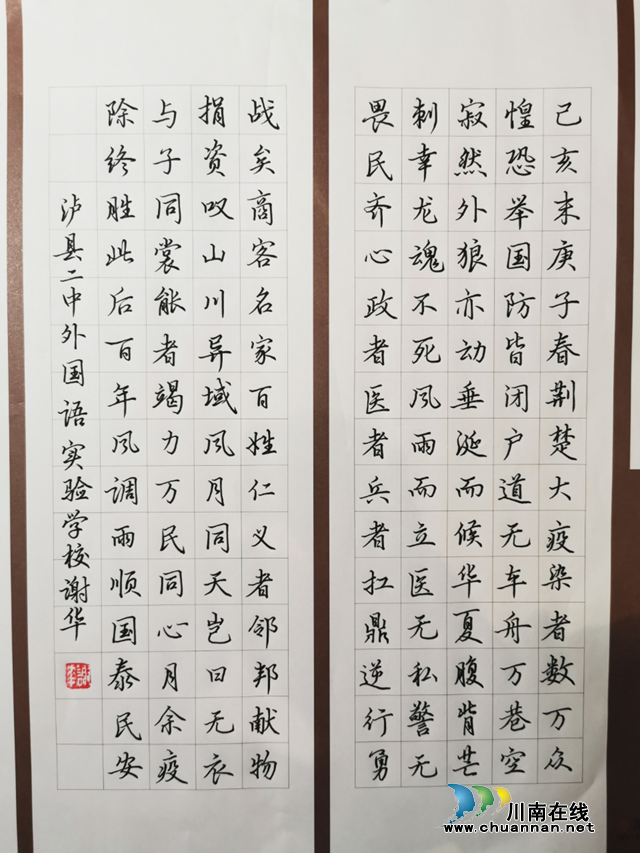 己亥末庚子春荆楚大疫染者数万众
惶恐举国防皆闭户道无车舟万巷空
寂然外狼亦动垂涎而候华夏腹背芒
刺幸龙魂不死风雨而立医无私警无
畏民齐心政者医者兵者扛鼎逆行勇
战矣商客名家百姓仁义者邻邦献物
捐资叹山川异域风月同天岂曰无衣
与子同裳能者竭力万民同心月余疫
除终胜此后百年风调雨顺国泰民安
泸县二中外国语实验学校谢华
川南在线
www.chuannan.net